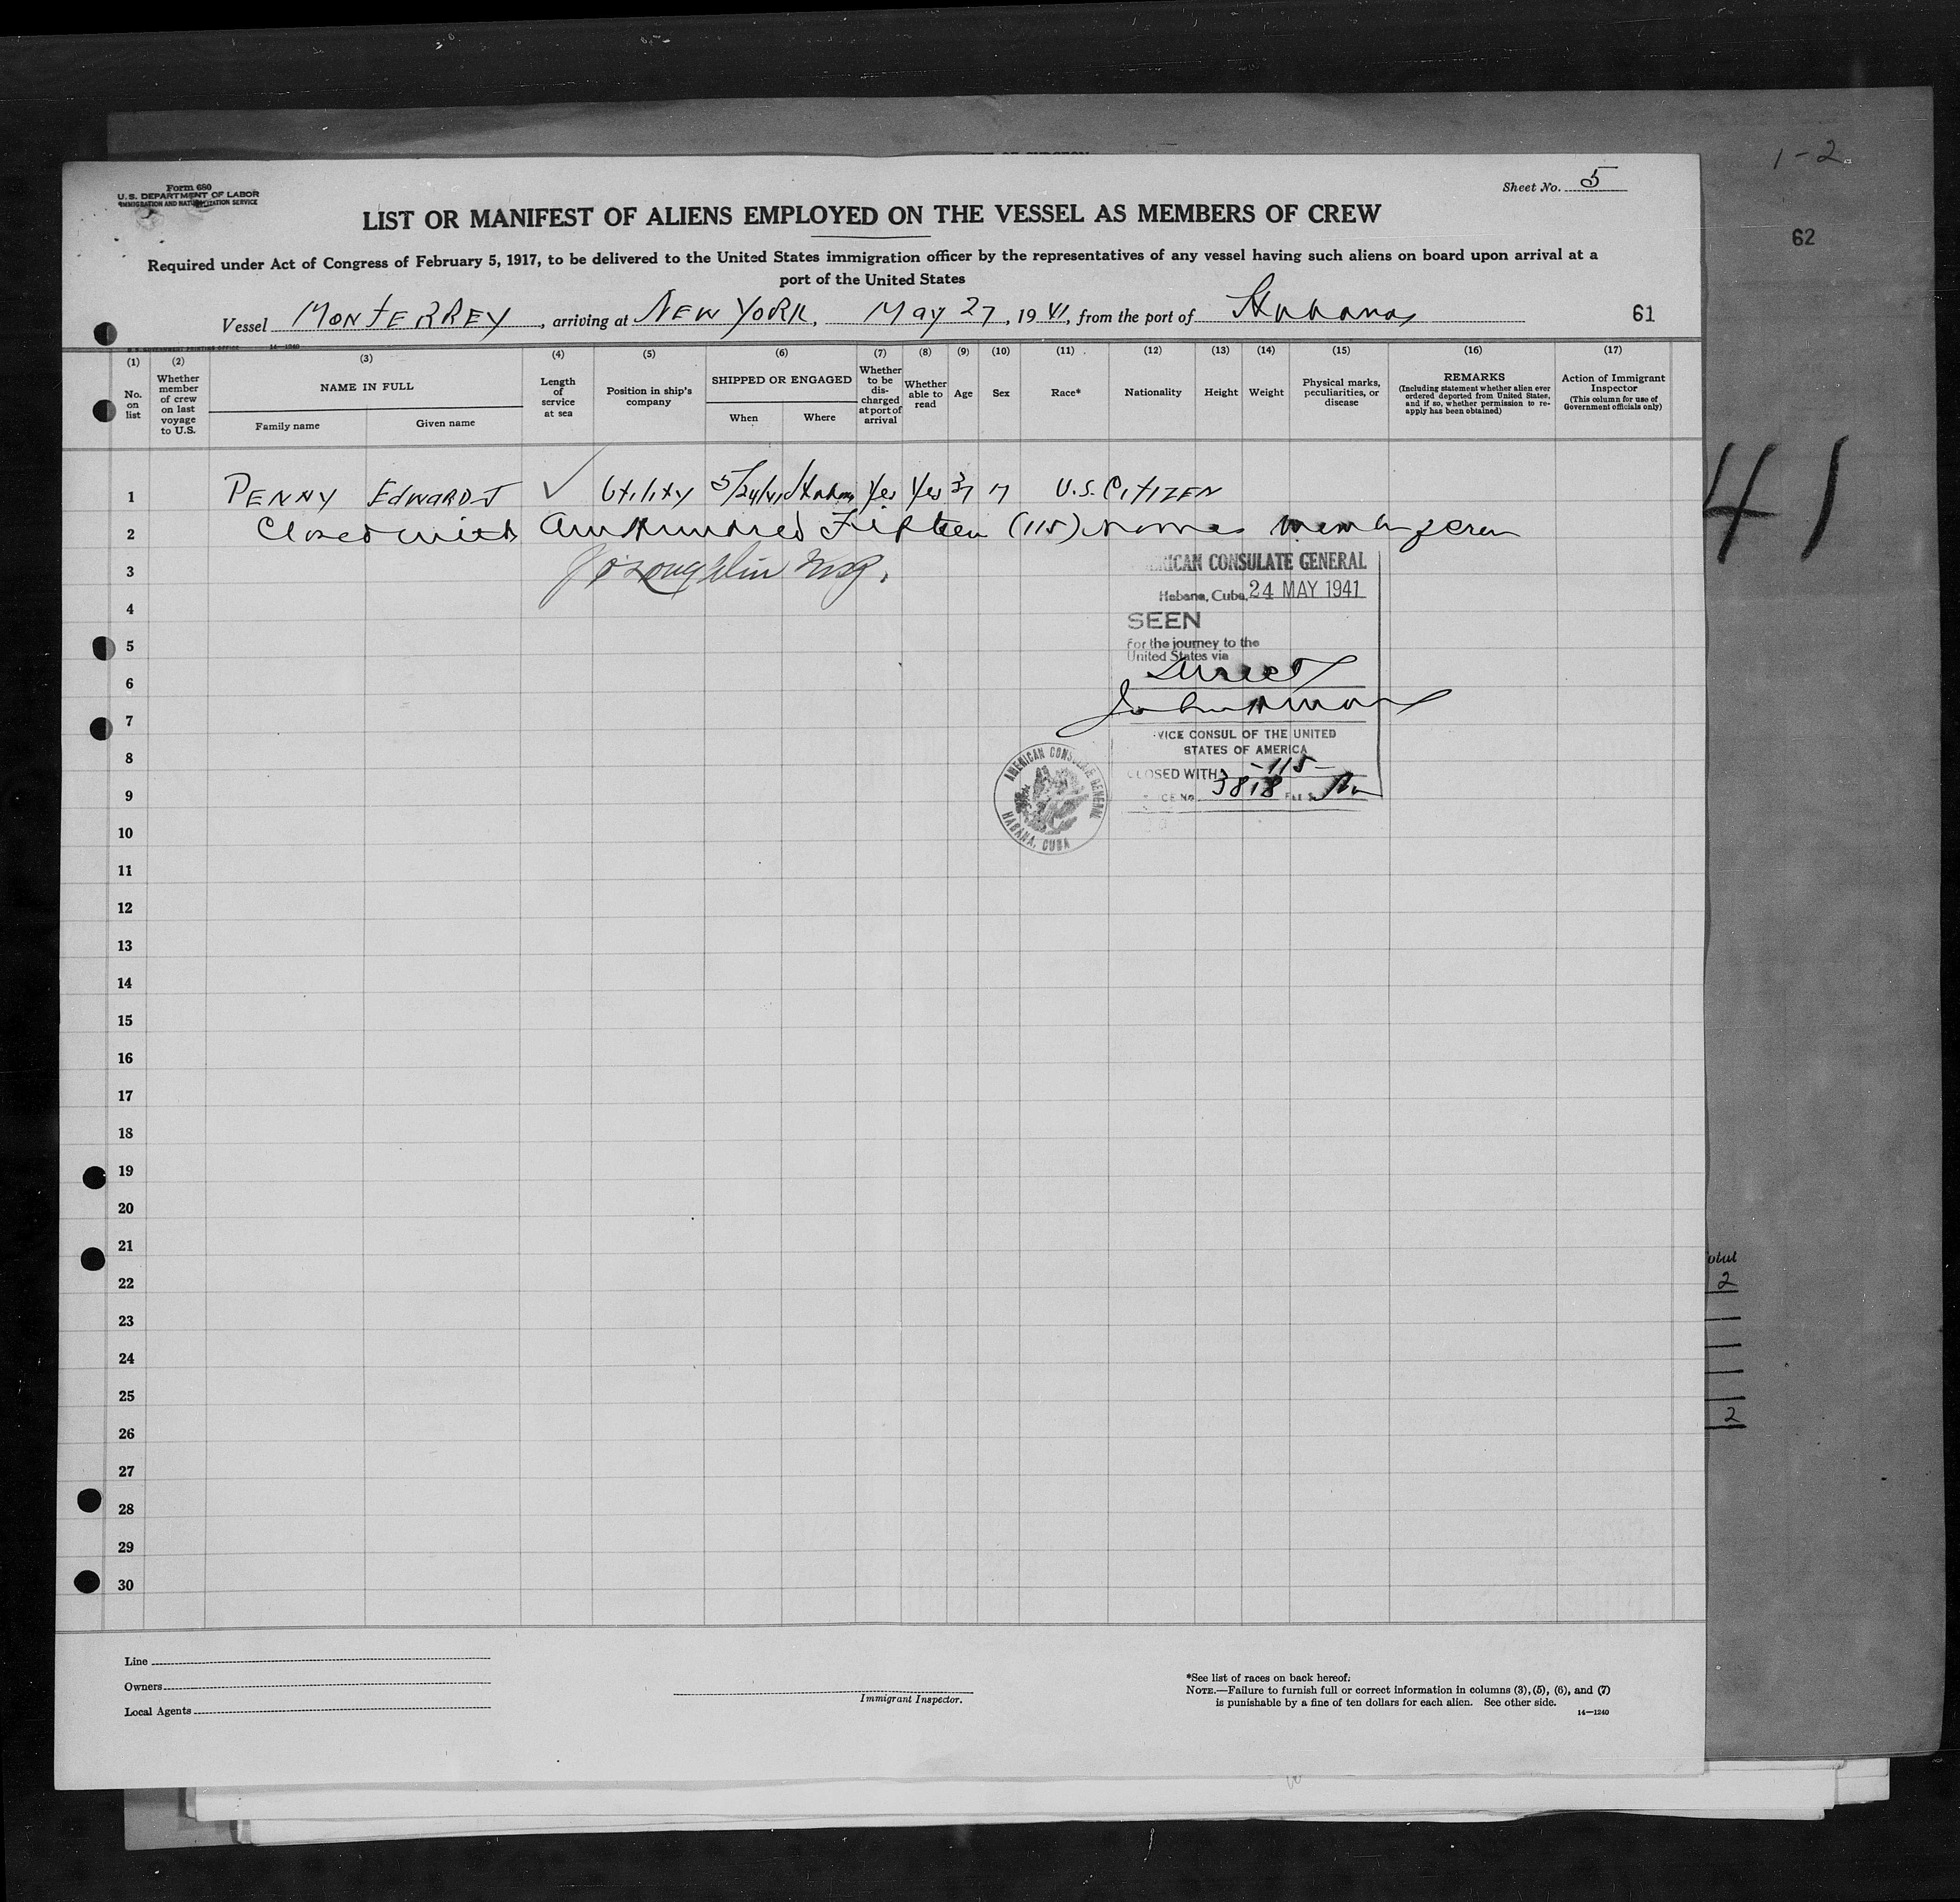 1-2
62
Form 680
U.S. DEPARTMENT OF LABOR
IMMIGRATION AND NATURALIZATION SERVICE
Sheet No. 5
LIST OR MANIFEST OF ALIENS EMPLOYED ON THE VESSEL AS MEMBERS OF CREW
Required under Act of Congress of February 5, 1917, to be delivered to the United States immigration officer by the representatives of any vessel having such aliens on board upon arrival at a
port of the United States
Vessel MONTERREY, arriving at NEW YORK, May 27, 1941, from the port of Habana
61
14-1240
(1) (2) (3) (4) (5) (6) (7) (8) (9) (10) (11) (12) (13) (14) (15) (16) (17)
No. on list
Whether member of crew on last voyage to U.S.
NAME IN FULL
Family name Given name
Length of service at sea
Position in ship's company
SHIPPED OR ENGAGED
When Where
Whether to be discharged at port of arrival
Whether able to read
Age
Sex
Race*
Nationality
Height
Weight
Physical marks, peculiarities, or disease
REMARKS
(Including statement whether alien ever ordered deported from United States, and if so, whether permission to reapply has been obtained)
Action of Immigrant Inspector
(This column for use of Government officials only)
1 PENNY EDWARD J ✓ Utility 5/24/41 Habana Yes Yes M U.S. CITIZEN
2 Closed with One Hundred Fifteen (115) Names
3 J O'Loughlin
41
AMERICAN CONSULATE GENERAL
Habana, Cuba, 24 MAY 1941
SEEN
For the journey to the
United States via
Direct
VICE CONSUL OF THE UNITED
STATES OF AMERICA
CLOSED WITH -115-
3818
AMERICAN CONSULATE GENERAL
HABANA, CUBA
4
5
6
7
8
9
10
11
12
13
14
15
16
17
18
19
20
21
22
23
24
25
26
27
28
29
30
2
2
Line
Owners
Local Agents
Immigrant Inspector.
*See list of races on back hereof.
NOTE.—Failure to furnish full or correct information in columns (3), (5), (6), and (7)
is punishable by a fine of ten dollars for each alien. See other side.
14-1240